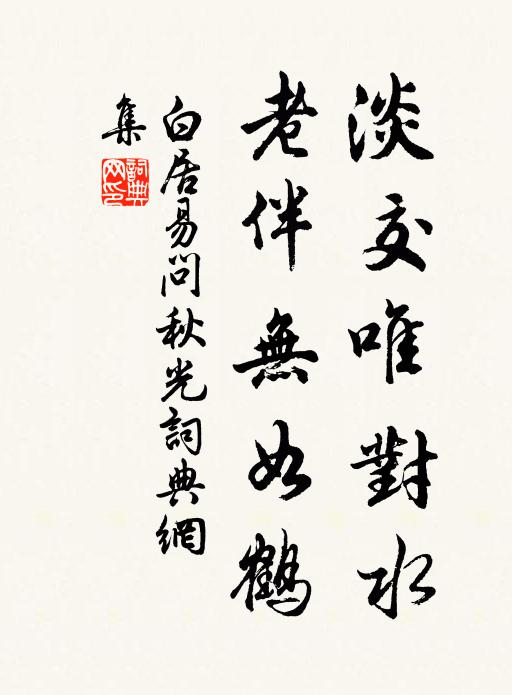 淡交唯對水
老伴無如鶴
白居易問秋光詞典網
集
詞典
网印